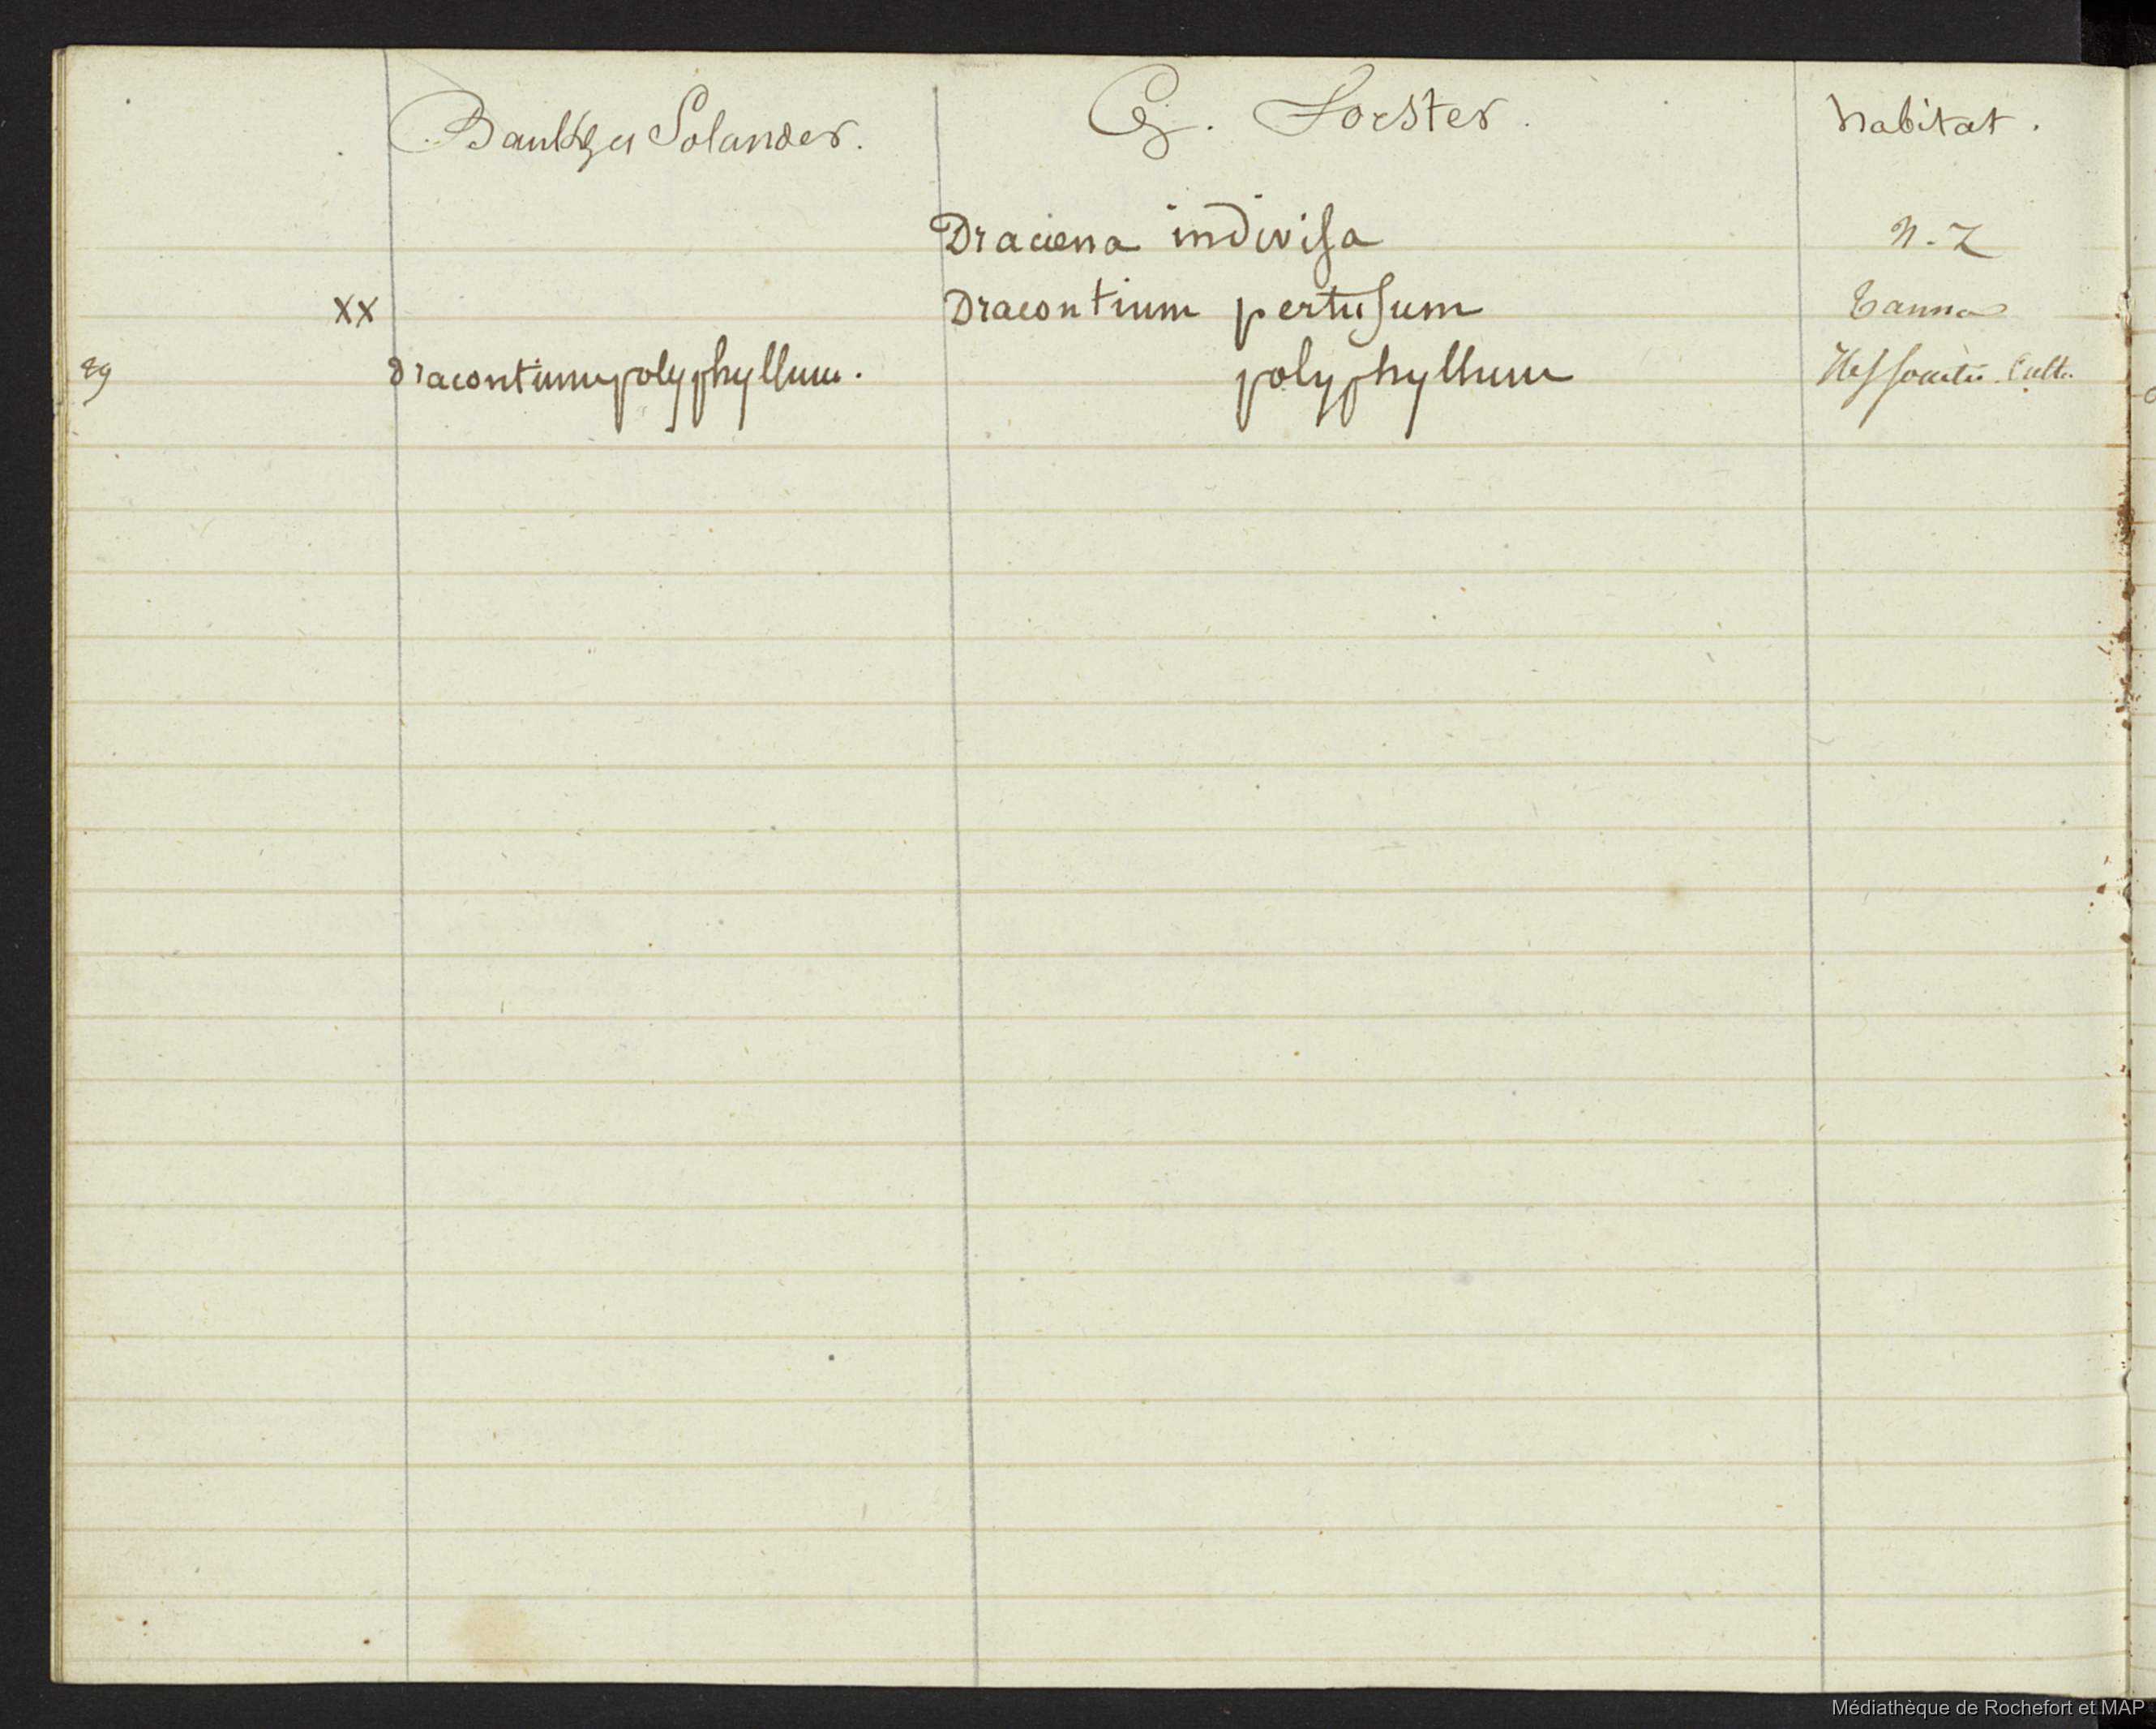 Banks et Solander. G. Forster. habitat.
Draciena indivisa N-Z
XX Dracontium pertusum Tanna
89 dracontium polyphyllum. polyphyllum Cult.
Médiathèque de Rochefort et MAP